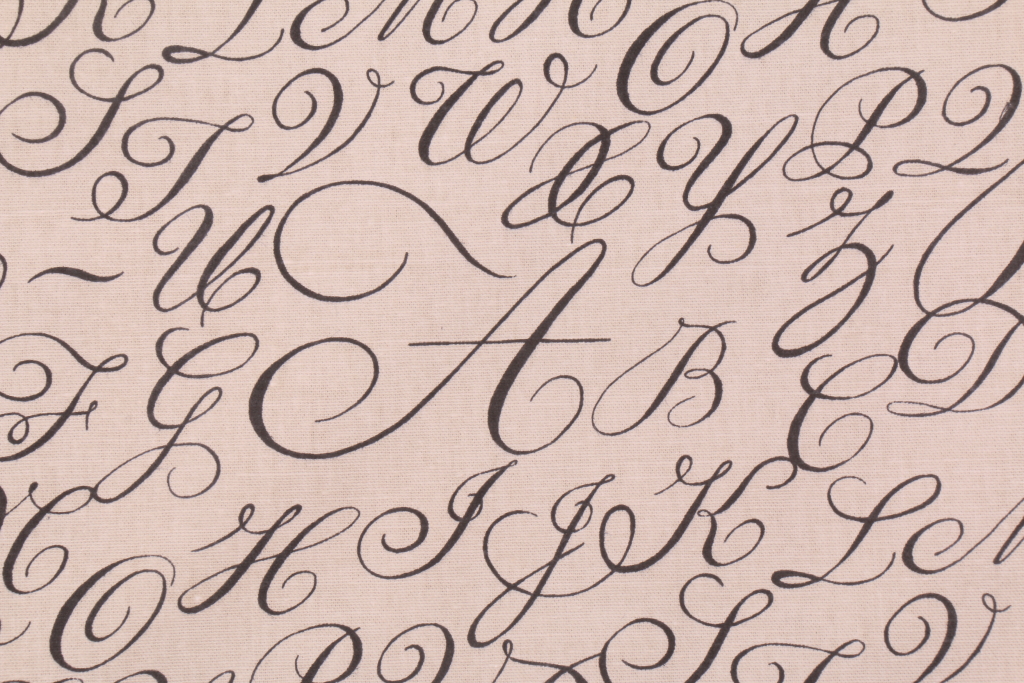 K L M N O H
S T V W X Y P Q
U A Z
F G B C D
C H I J K L M
O P Q S T V